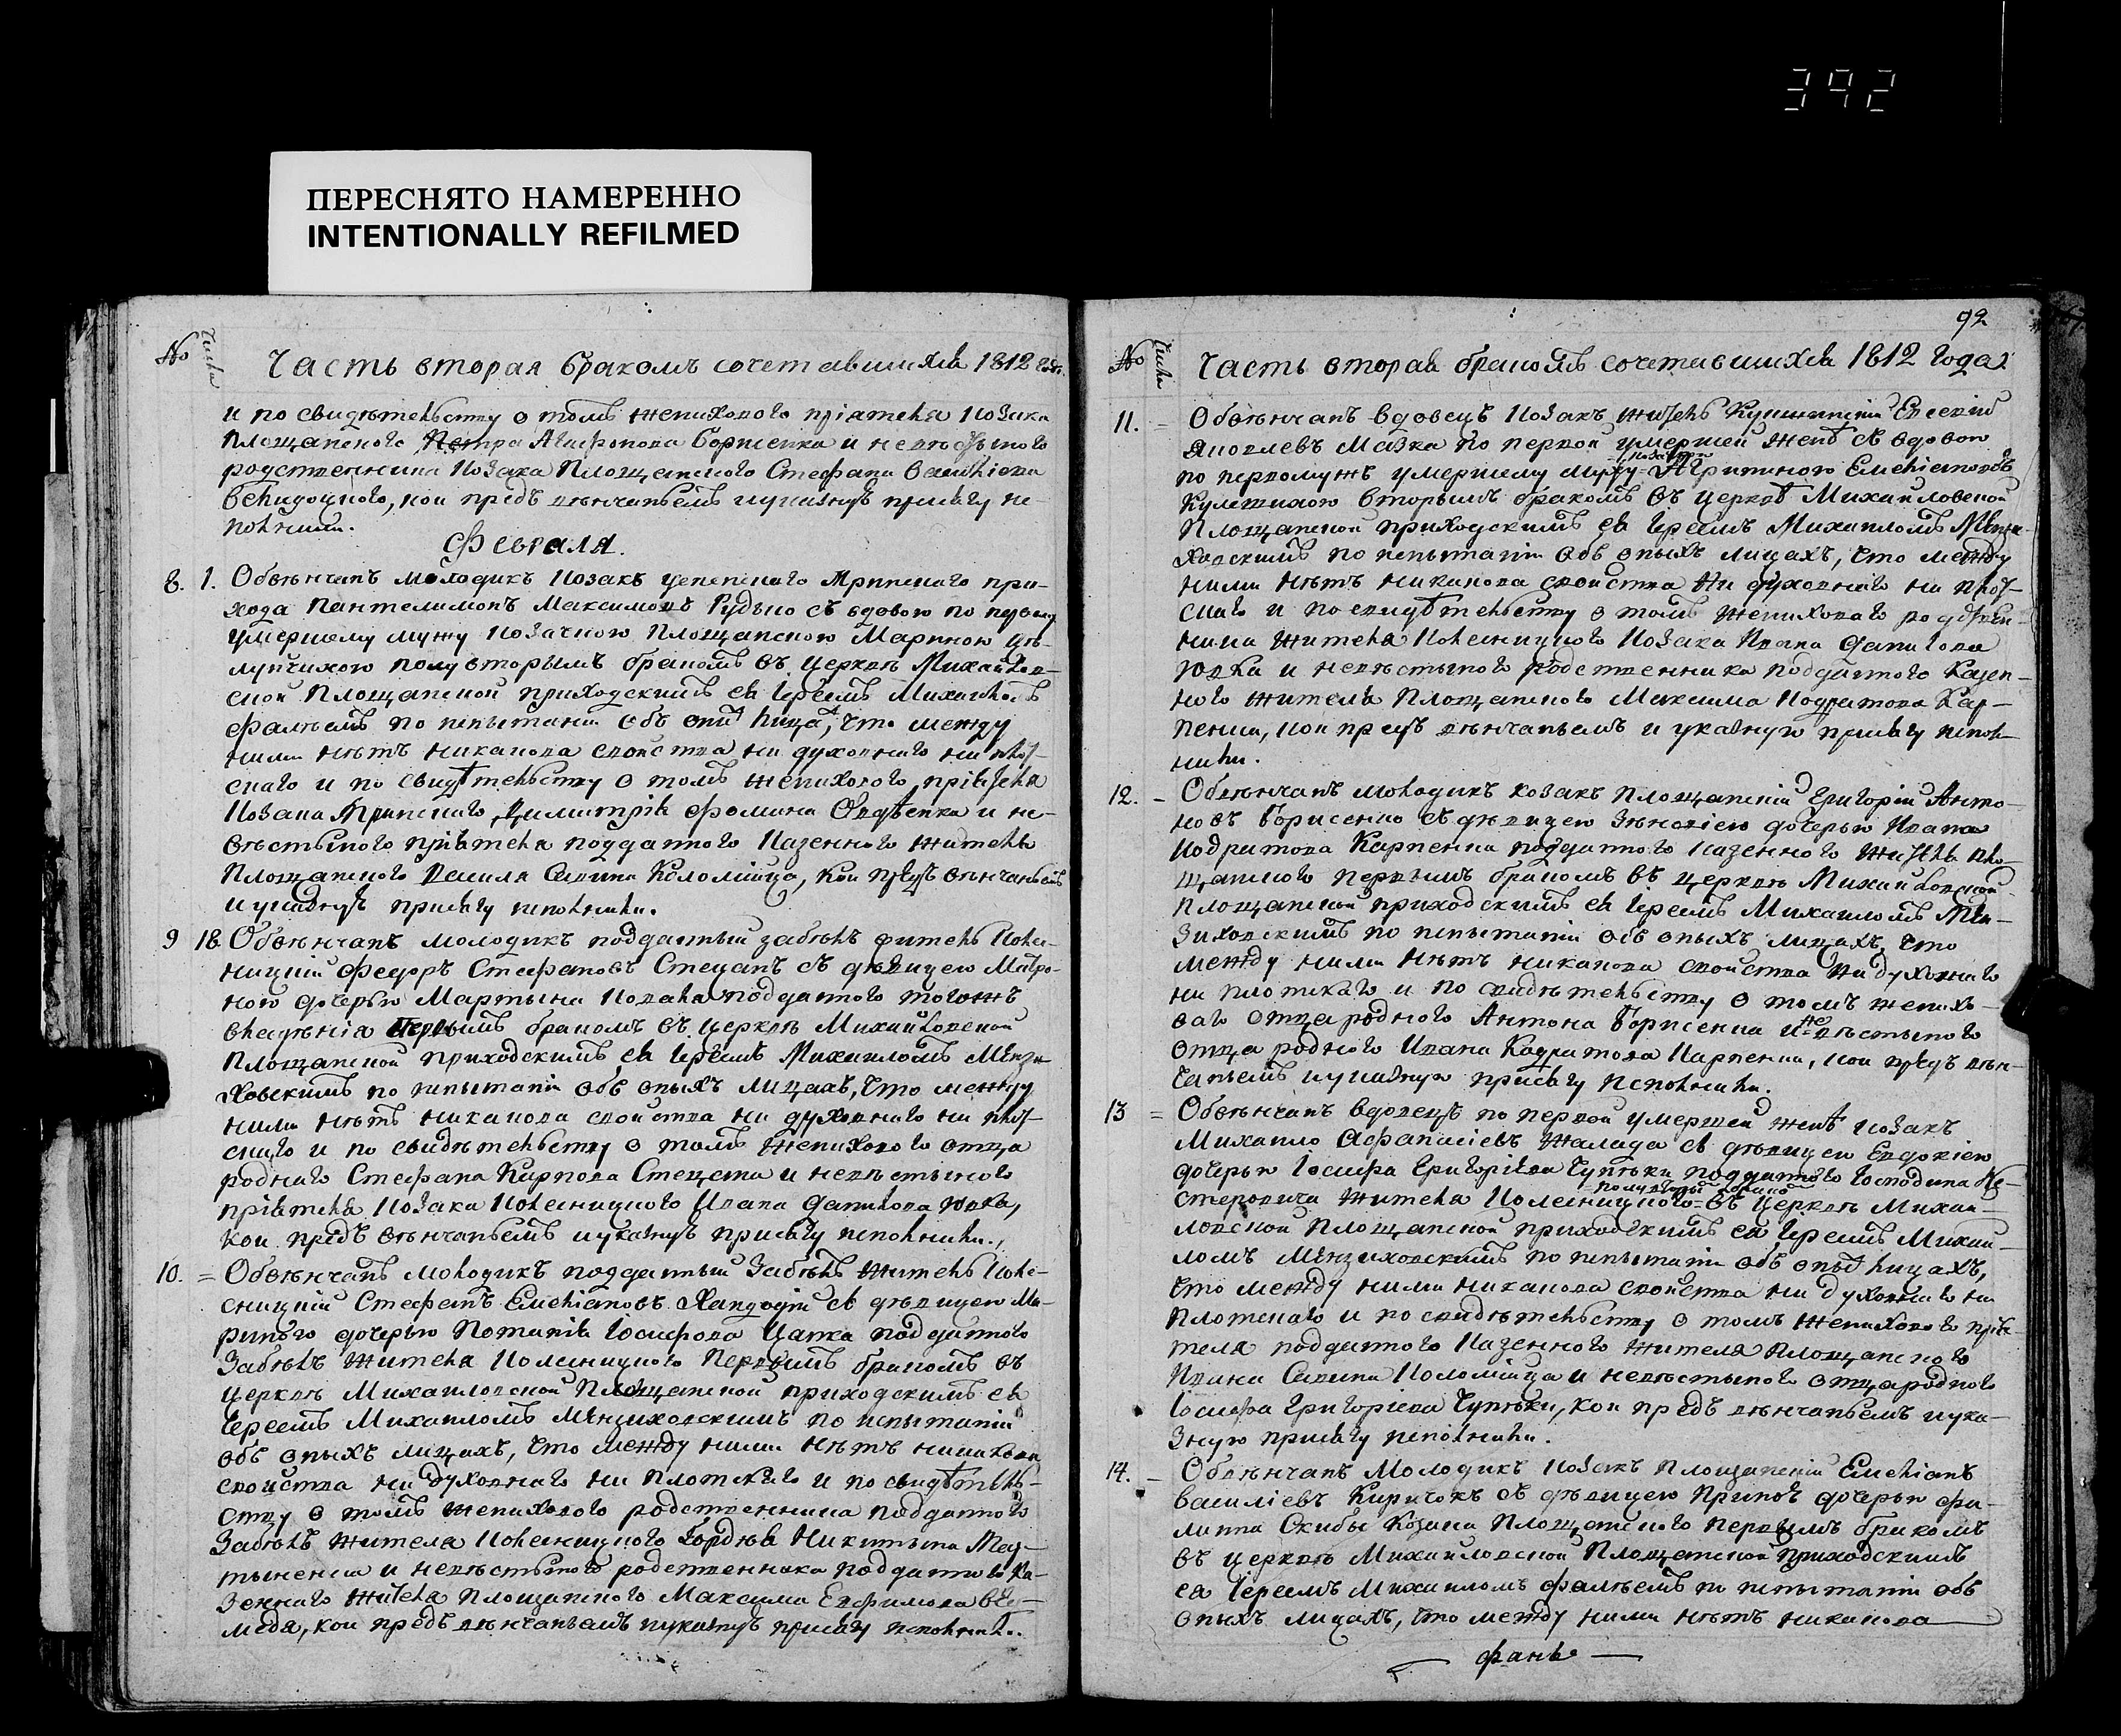 392
ПЕРЕСНЯТО НАМЕРЕННО
INTENTIONALLY REFILMED
№ Числа Часть вторая бракомъ сочетавшихся 1812
и по свидѣтельству о томъ женихового пріятеля козака
Площанского Агафонова Борисенка и невѣстного
родственника козака Площанского Стефана
кои предъ вѣнчаньемъ указную присягу
Февраля.
8. 1. Обвѣнчанъ молодикъ козакъ прихода
Пантелимонъ Максимовъ Рудько съ вдовою по первому
умершему мужу козачкою Площанскою Мариною
полувторымъ бракомъ въ церквѣ Михайловской
Площанской приходскимъ ея Іереемъ Михаиломъ
Фалѣемъ по испытаніи объ лицах, что между
ними нѣтъ никакова свойства ни духовнаго ни плот-
скаго и по свидѣтельству о томъ женихового пріятеля
козака Димитрія Фомина и не-
вѣстыного пріятеля подданного казенного жителя
Площанского Василя Савина Коломійца, кои предъ вѣнчаньемъ
и указную присягу исполнили.
9 18. Обвѣнчанъ молодикъ подданный житель Колес-
ницкій Федоръ Стефановъ Стецанъ съ дѣвицею Матро-
ною дочерью Мартына Коваля подданного тогожъ
владѣнія Первымъ бракомъ въ церквѣ Михайловской
Площанской приходскимъ ея Іереемъ Михаиломъ Мензи-
ховскимъ по испытаніи объ оныхъ лицахъ, что между
ними нѣтъ никакова свойства ни духовнаго ни плот-
скаго и по свидѣтельству о томъ женихового отца
родного Стефана Карпова Стецана и невѣстыного
пріятеля козака Колесницкого Ивана Данилова Юрка,
кои предъ вѣнчаньемъ указную присягу исполнили.
10. = Обвѣнчанъ молодикъ подданный житель Коле-
сницкій Стефанъ Емеліановъ съ дѣвицею Ма-
риною дочерью Потапія Іосифова Цапка подданного
жителя Колесницкого Первымъ бракомъ въ
церквѣ Михайловской Площанской приходскимъ ея
Іереемъ Михаиломъ Мензиховскимъ по испытаніи
объ оныхъ лицахъ, что между ними нѣтъ никакова
свойства ни духовнаго ни плотскаго и по свидѣтель-
ству о томъ женихового родственника подданного
жителя Колесницкого Гордѣя Никитина Мар-
тыненка и невѣстыного родственника подданного Ка-
зенного жителя Площанского Максима Евфимова
кои предъ вѣнчаньемъ указную присягу исполнили.
92
№ Числа Часть вторая бракомъ сочетавшихся 1812 года
11. = Обвѣнчанъ вдовецъ козакъ житель Евсевій
Яковлевъ Мазка по первой умершей женѣ съ вдовою
по первомужъ умершему мужу козачкою Агрипиною Емеліановою
вторымъ бракомъ въ церквѣ Михайловской
Площанской приходскимъ ея Іереемъ Михаиломъ Мензи-
ховскимъ по испытаніи объ оныхъ лицахъ, что между
ними нѣтъ никакова свойства ни духовнаго ни плот-
скаго и по свидѣтельству о томъ женихового родствен-
ника жителя Колесницкого козака Ивана Данилова
Юрка и невѣстыного родственника подданного казен-
ного жителя Площанского Максима Кодратова Кар-
пенка, кои предъ вѣнчаньемъ и указную присягу испол-
нили.
12. - Обвѣнчанъ молодикъ козакъ Площанскій Григорій Анто-
новъ Борисенко съ дѣвицею Зѣновіею дочерью Ивана
Кодратова Карпенка подданного казенного жителя Пло-
щанского первымъ бракомъ въ церквѣ Михайловской
Площанской приходскимъ ея Іереемъ Михаиломъ Мен-
зиховскимъ по испытаніи объ оныхъ лицахъ, что
между ними нѣтъ никакова свойства ни духовнаго
ни плотскаго и по свидѣтельству о томъ женихо-
ваго отца родного Антона Борисенка и невѣстыного
отца родного Ивана Кодратова Карпенка, кои предъ вѣн-
чаньемъ и указную присягу исполнили.
13 = Обвѣнчанъ вдовецъ по первой умершей женѣ козакъ
Михаило Афанасіевъ Жалада съ дѣвицею Евдокіею
дочерью Іосифа Григоріева Чупѣки подданного господина Не-
стеровича жителя Колесницкого полувторымъ бракомъ въ церквѣ Михай-
ловской Площанской приходскимъ ея Іереемъ Михаи-
ломъ Мензиховскимъ по испытаніи объ оныхъ лицахъ,
что между ними никакова свойства ни духовнаго ни
плотскаго и по свидѣтельству о томъ женихового прія-
теля подданного казенного жителя Площанского
Ивана Савина Коломійца и невѣстыного отца родного
Іосифа Григоріева Чупѣки, кои предъ вѣнчаньемъ и ука-
зную присягу исполнили.
14. - Обвѣнчанъ молодикъ козакъ Площанскій Емеліанъ
Василіевъ Киричокъ съ дѣвицею Ириною дочерью Фи-
липпа Скибы козака Площанского первымъ бракомъ
въ церквѣ Михайловской Площанской приходскимъ
ея Іереемъ Михаиломъ Фалѣемъ по испытаніи объ
оныхъ лицахъ, что между ними нѣтъ никакова